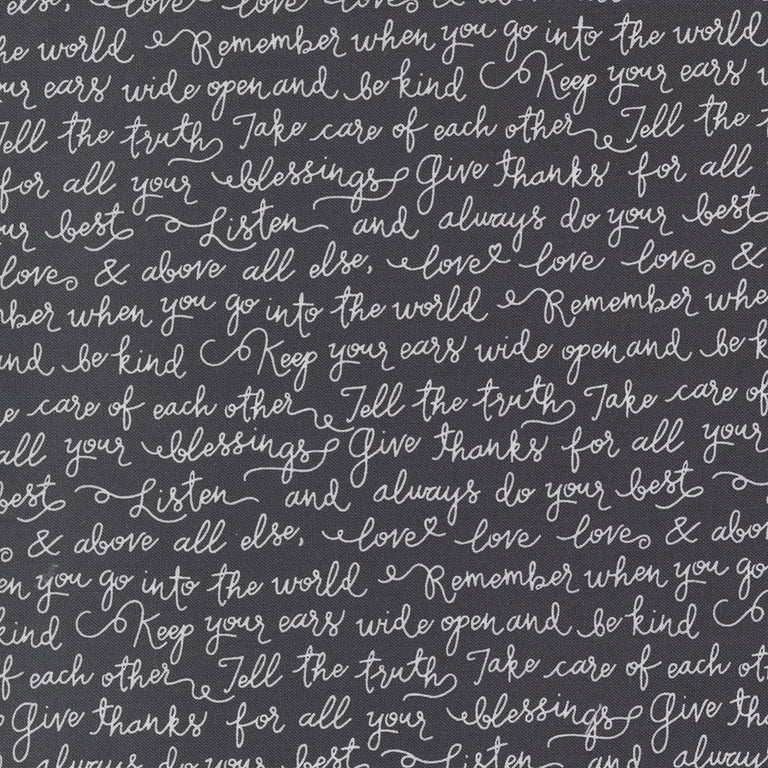 else, love love love & above all
he world Remember when you go into the world
ur ears wide open and be kind Keep your ears
Tell the truth Take care of each other Tell the
for all your blessings Give thanks for all
ur best Listen and always do your best
love & above all else, love love love &
mber when you go into the world Remember whe
and be kind Keep your ears wide open and be k
e care of each other Tell the truth Take care of
all your blessings Give thanks for all your
best Listen and always do your best
& above all else, love love love & abo
en you go into the world Remember when you go
kind Keep your ears wide open and be kind
f each other Tell the truth Take care of each ot
Give thanks for all your blessings Give tha
always do your best Listen and always